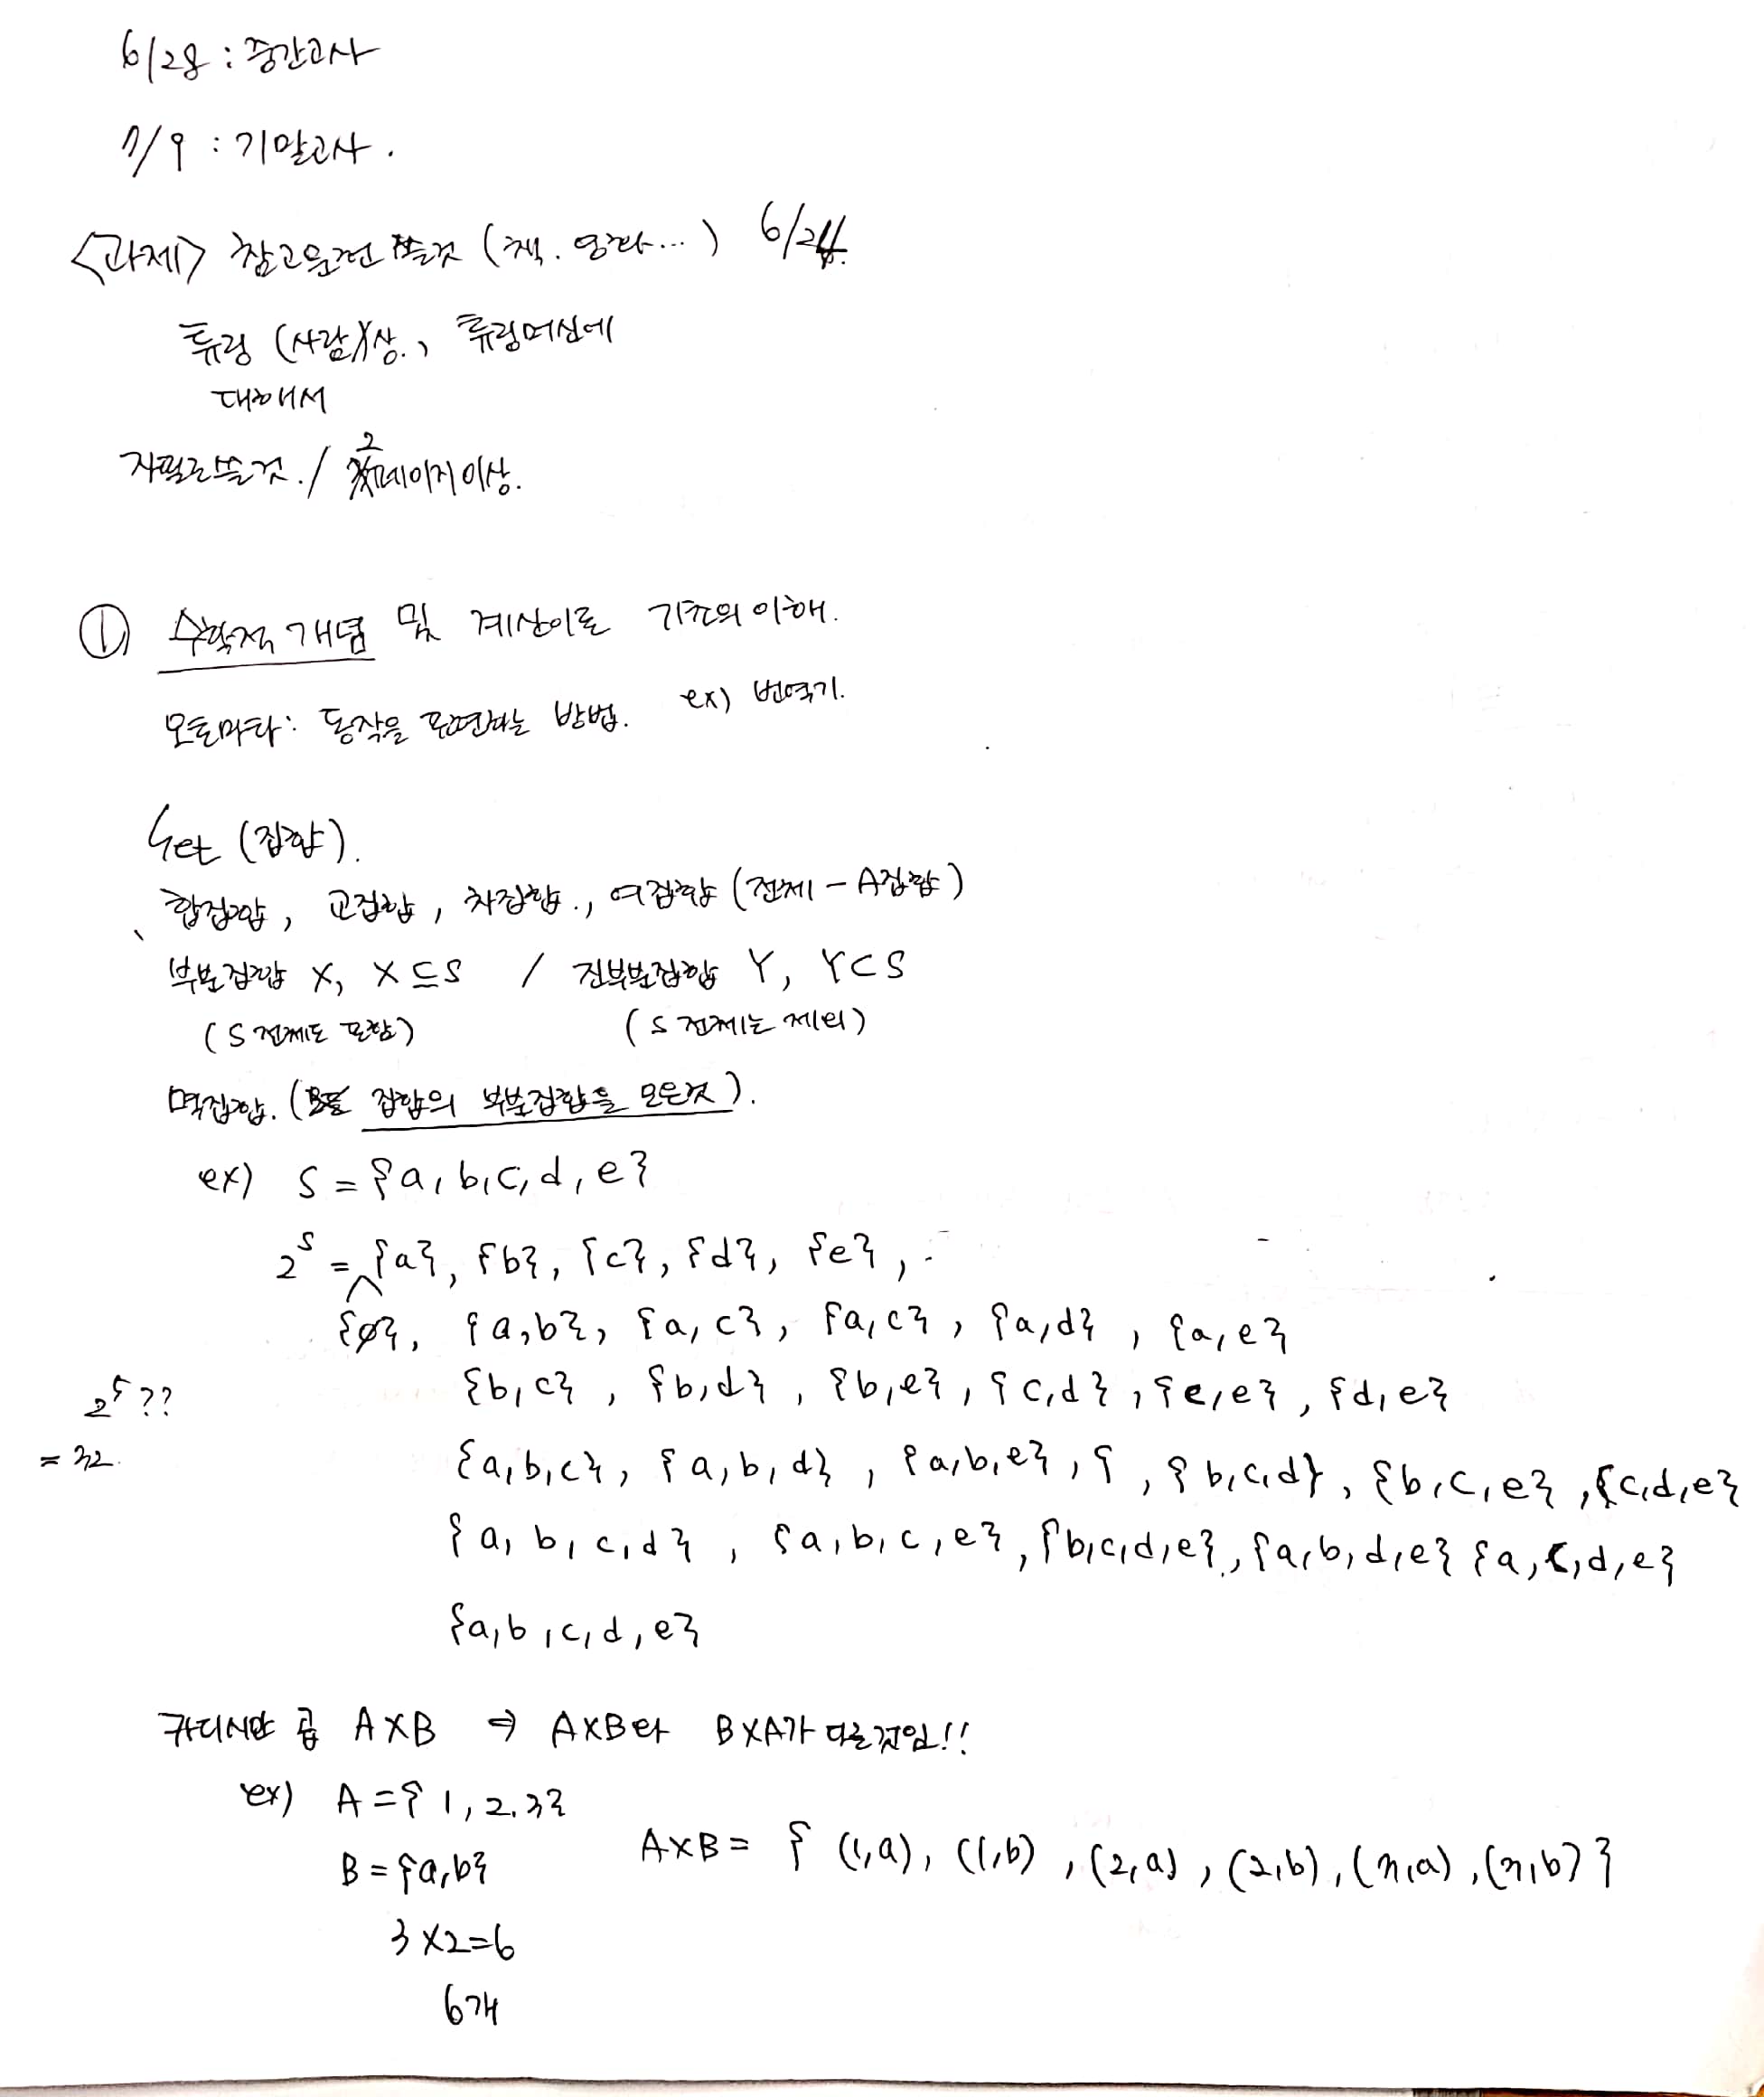 6/28 : 중간고사
7/9 : 기말고사.
<과제> 참고문헌 쓸것 (책. 영화...) 6/24.
튜링 (사람)상., 튜링머신에
대해서
자필로쓸것. / 2페이지이상.
① 수학적 개념 및 계산이론 기초의 이해.
오토마타: 동작을 표현하는 방법. ex) 번역기.
Set (집합).
합집합, 교집합, 차집합., 여집합 (전체 - A집합)
부분집합 X, X ⊆ S / 진부분집합 Y, Y⊂S
(S 전체도 포함) (S 전체는 제외)
멱집합. (집합의 부분집합을 모은것).
ex) S = {a, b, c, d, e}
2^S = {a}, {b}, {c}, {d}, {e},
{ø}, {a,b}, {a,c}, {a,c}, {a,d}, {a,e}
{b,c}, {b,d}, {b,e}, {c,d}, {e,e}, {d,e}
2^5 ??
= 32.
{a,b,c}, {a,b,d}, {a,b,e}, {, {b,c,d}, {b,c,e}, {c,d,e}
{a,b,c,d}, {a,b,c,e}, {b,c,d,e}, {a,b,d,e} {a,c,d,e}
{a,b,c,d,e}
카디시안 곱 A×B ⇒ A×B와 B×A가 다른것임!!
ex) A = {1, 2, 3}
B = {a,b} A×B = { (1,a), (1,b), (2,a), (2,b), (3,a), (3,b) }
3×2=6
6개